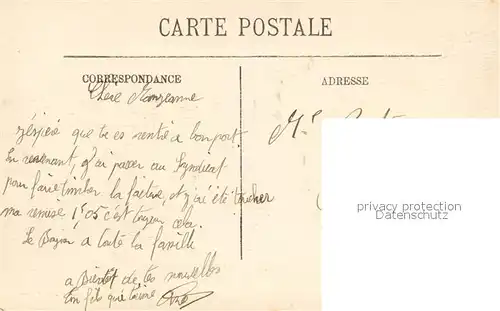 CARTE POSTALE
CORRESPONDANCE
ADRESSE
Chère
j'éspère que tu es rentré a bon port
En revenant, j'ai passer au Syndicat
pour faire timbrer la factive, et j'ai été toucher
ma remise 1f05 c'est toujour cela
Le Bonjour a toute la famille
a Bientôt de tes nouvelles
Ton fils qui t'aime
privacy protection
Datenschutz